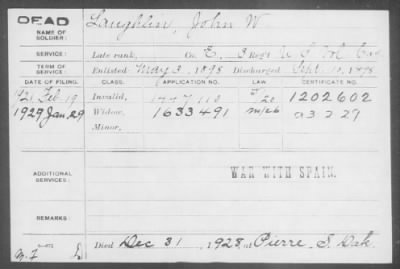 DEAD
NAME OF SOLDIER: Laughlin, John W.
SERVICE: Late rank, Co. E, 3 Reg't U S Vol Cav
TERM OF SERVICE: Enlisted May 3, 1898 Discharged Sept. 1898
DATE OF FILING. APPLICATION NO. LAW. CERTIFICATE NO.
Feb. 19 Invalid, 1202602
1929 Jan 29 Widow, 1633491 a 3 2 29
Minor,
ADDITIONAL SERVICES:
WAR WITH SPAIN.
REMARKS:
Died Dec 31, 1928, at Pierre, S. Dak.